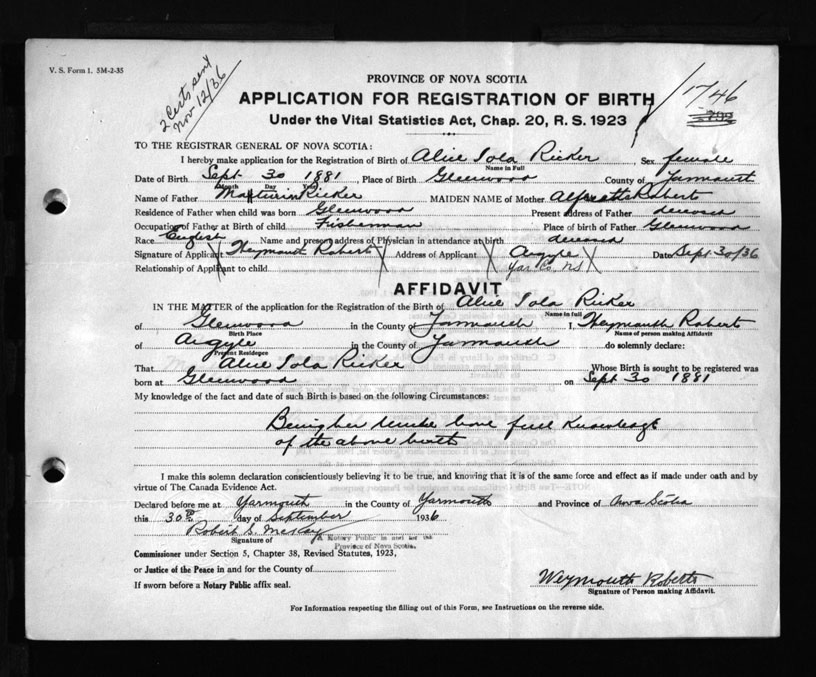 V. S. Form 1. 5M-2-35
2 Certs sent
Nov 12/36
PROVINCE OF NOVA SCOTIA
APPLICATION FOR REGISTRATION OF BIRTH
1746
Under the Vital Statistics Act, Chap. 20, R. S. 1923
TO THE REGISTRAR GENERAL OF NOVA SCOTIA:
I hereby make application for the Registration of Birth of Alice Iola Ricker Sex female
Name in Full
Date of Birth Sept 30 1881 Place of Birth Glenwood County of Yarmouth
Month Day Year
Name of Father Ricker MAIDEN NAME of Mother Roberts
Residence of Father when child was born Glenwood Present address of Father deceased
Occupation of Father at Birth of child Fisherman Place of birth of Father Glenwood
Race English Name and present address of Physician in attendance at birth deceased
Signature of Applicant Weymouth Roberts Address of Applicant Argyle Date Sept 30/36
Relationship of Applicant to child Yar. Co. N.S.
AFFIDAVIT
IN THE MATTER of the application for the Registration of the Birth of Alice Iola Ricker
Name in full
of Glenwood in the County of Yarmouth I, Weymouth Roberts
Birth Place Name of person making Affidavit
of Argyle in the County of Yarmouth do solemnly declare:
Present Residence
That Alice Iola Ricker Whose Birth is sought to be registered was
born at Glenwood on Sept 30 1881
My knowledge of the fact and date of such Birth is based on the following Circumstances:
Being her Uncle have full Knowledge
of the above birth
I make this solemn declaration conscientiously believing it to be true, and knowing that it is of the same force and effect as if made under oath and by
virtue of The Canada Evidence Act.
Declared before me at Yarmouth in the County of Yarmouth and Province of Nova Scotia
this 30th day of September 1936
Robert S. McKay
Signature of A Notary Public in and for the
Province of Nova Scotia.
Commissioner under Section 5, Chapter 38, Revised Statutes, 1923,
or Justice of the Peace in and for the County of
If sworn before a Notary Public affix seal.
Weymouth Roberts
Signature of Person making Affidavit.
For Information respecting the filling out of this Form, see Instructions on the reverse side.